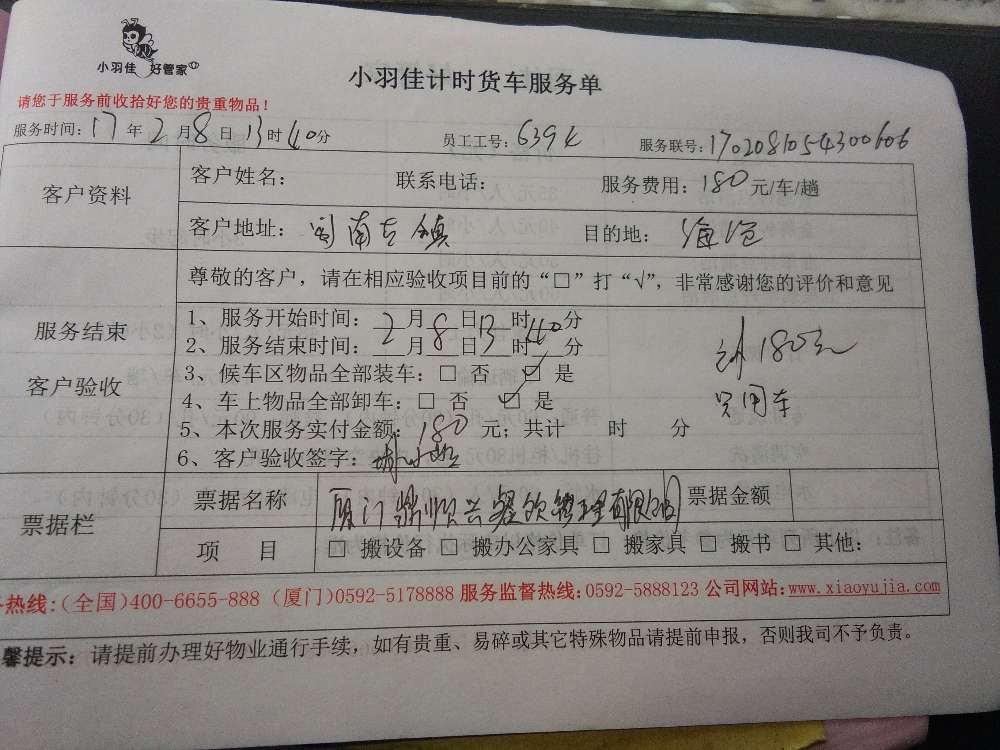 小羽佳 好管家
小羽佳计时货车服务单
请您于服务前收拾好您的贵重物品！
服务时间：17年2月8日13时40分 员工工号：6394 服务联号：1702081054300606
客户资料 客户姓名： 联系电话： 服务费用：180元/车/趟
客户地址：闽南古镇 目的地：海沧
尊敬的客户，请在相应验收项目前的“□”打“√”，非常感谢您的评价和意见
服务结束
客户验收
1、服务开始时间：2月8日13时40分
2、服务结束时间：___月___日___时___分
3、候车区物品全部装车：□ 否 ☑ 是
4、车上物品全部卸车：□ 否 ☑ 是
5、本次服务实付金额：180元；共计 时 分
6、客户验收签字：
180元
只用车
票据栏 票据名称 厦门鼎顺兴餐饮管理有限公司 票据金额
项 目 □ 搬设备 □ 搬办公家具 □ 搬家具 □ 搬书 □ 其他：
热线：(全国)400-6655-888 (厦门)0592-5178888 服务监督热线：0592-5888123 公司网站：www.xiaoyujia.com
馨提示：请提前办理好物业通行手续，如有贵重、易碎或其它特殊物品请提前申报，否则我司不予负责。